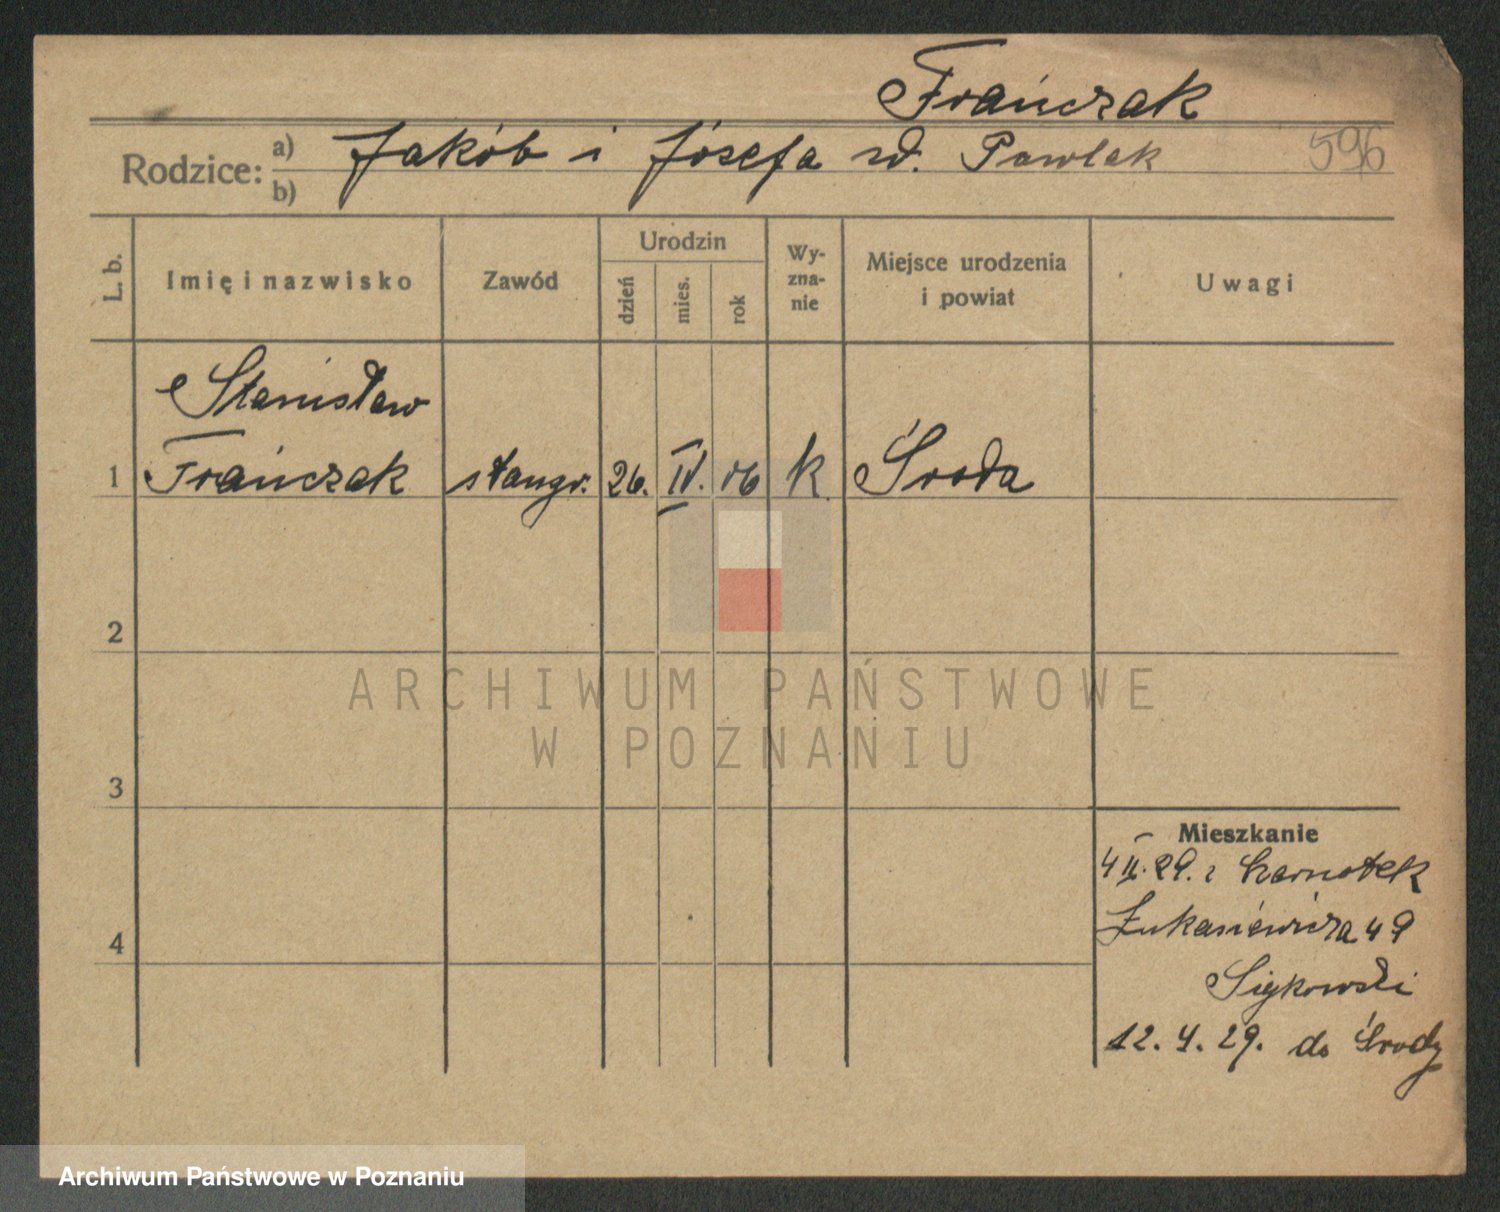 Frańczak
Rodzice: a) Jakób i Józefa zd. Pawlak 596
b)
L. b. Imię i nazwisko Zawód Urodzin dzień mies. rok Wyznanie Miejsce urodzenia i powiat Uwagi
Stanisław
1 Frańczak stangr. 26. IV. 06 k. Środa
2
ARCHIWUM PAŃSTWOWE
W POZNANIU
3
Mieszkanie
4 II. 29. z Czarnotek
Łukasiewicza 49
4
12. 4. 29. do Środy
Archiwum Państwowe w Poznaniu